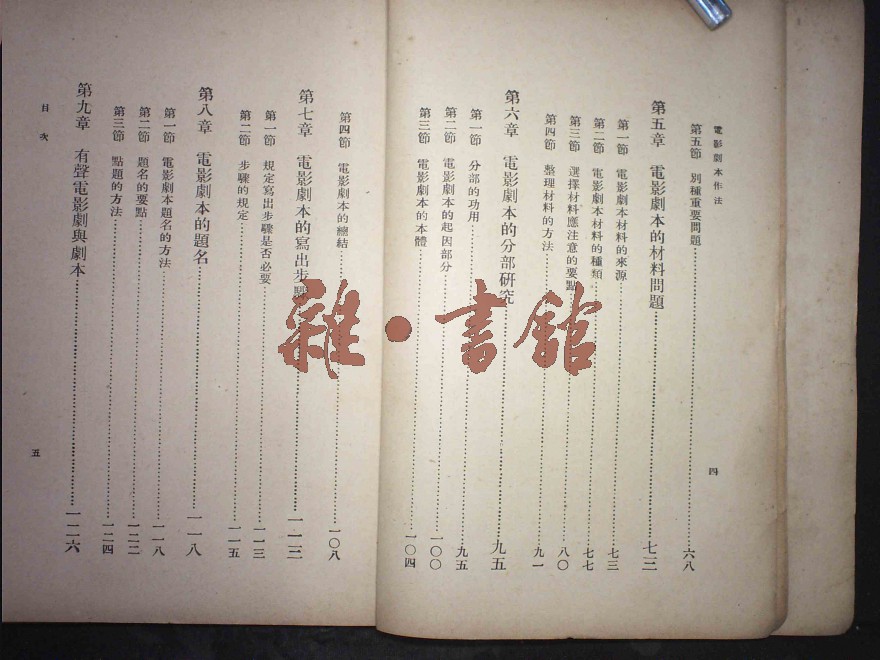 電影劇本作法
第五節 別種重要問題 六八
第五章 電影劇本的材料問題 七三
第一節 電影劇本材料的來源 七三
第二節 電影劇本材料的種類 七七
第三節 選擇材料應注意的要點 八〇
第四節 整理材料的方法 九一
第六章 電影劇本的分部研究 九五
第一節 分部的功用 九五
第二節 電影劇本的起因部分 一〇〇
第三節 電影劇本的本體 一〇四
四
第四節 電影劇本的總結 一〇八
第七章 電影劇本的寫出步驟 一一三
第一節 規定寫出步驟是否必要 一一三
第二節 步驟的規定 一一五
第八章 電影劇本的題名 一一八
第一節 電影劇本題名的方法 一一八
第二節 題名的要點 一二二
第三節 點題的方法 一二四
第九章 有聲電影劇與劇本 一二六
目次
五
雜·書館